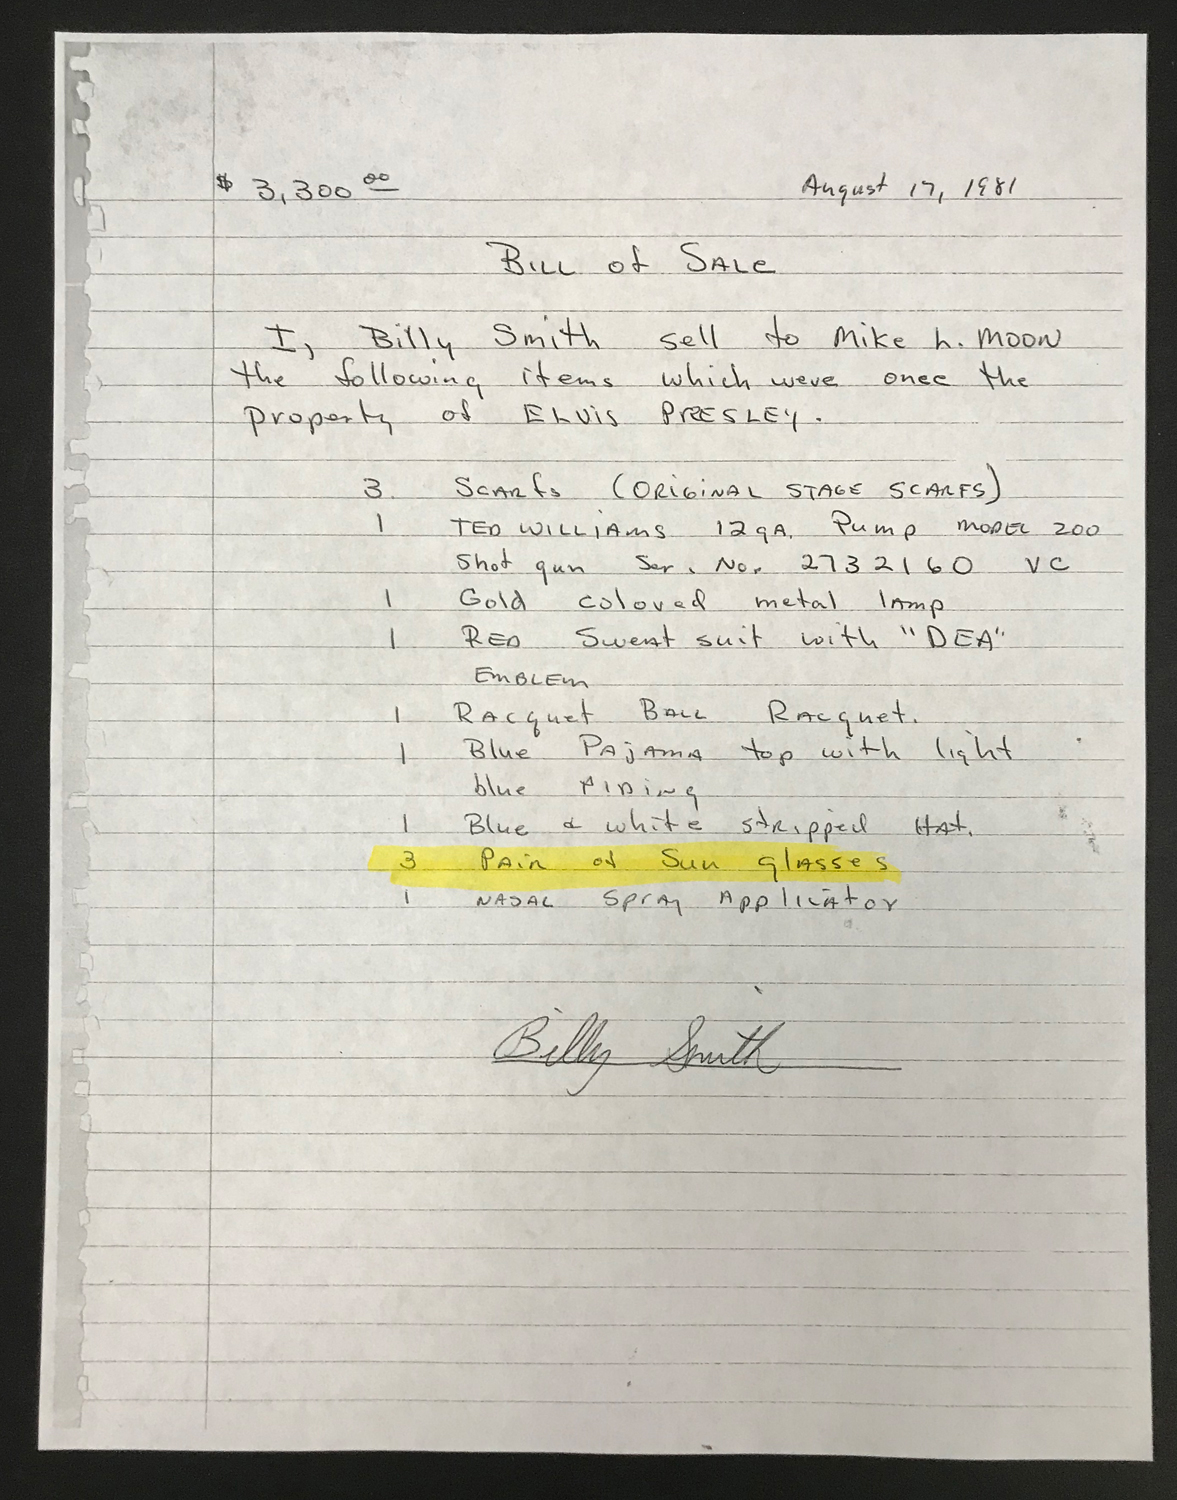 $ 3,300 00
August 17, 1981
Bill of Sale
I, Billy Smith sell to Mike L. Moon
the following items which were once the
property of ELVIS PRESLEY.
3 Scarfs (ORIGINAL STAGE SCARFS)
1 TED WILLIAMS 12 ga. Pump MODEL 200
Shot gun Ser. No. 2732160 VC
1 Gold colored metal lamp
1 RED Sweat suit with "DEA"
EMBLEM
1 Racquet Ball Racquet.
1 Blue Pajama top with light
blue Piping
1 Blue & white stripped Hat.
3 Pair of Sun glasses
1 NASAL Spray Applicator
Billy Smith